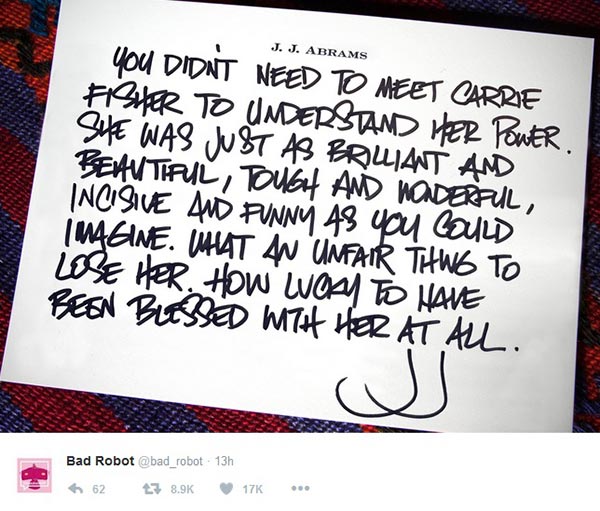 J. J. ABRAMS
YOU DIDN'T NEED TO MEET CARRIE
FISHER TO UNDERSTAND HER POWER.
SHE WAS JUST AS BRILLIANT AND
BEAUTIFUL, TOUGH AND WONDERFUL,
INCISIVE AND FUNNY AS YOU COULD
IMAGINE. WHAT AN UNFAIR THING TO
LOSE HER. HOW LUCKY TO HAVE
BEEN BLESSED WITH HER AT ALL.
JJ
Bad Robot @bad_robot · 13h
62 8.9K 17K